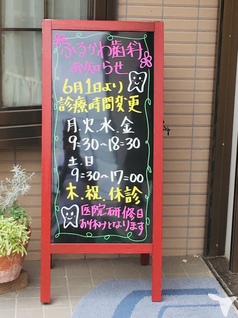 ふるかわ歯科
お知らせ
6月1日より
診療時間変更
月.火.水.金
9:30~18:30
土.日
9:30~17:00
木.祝.休診
医院研修日
お休みとなります